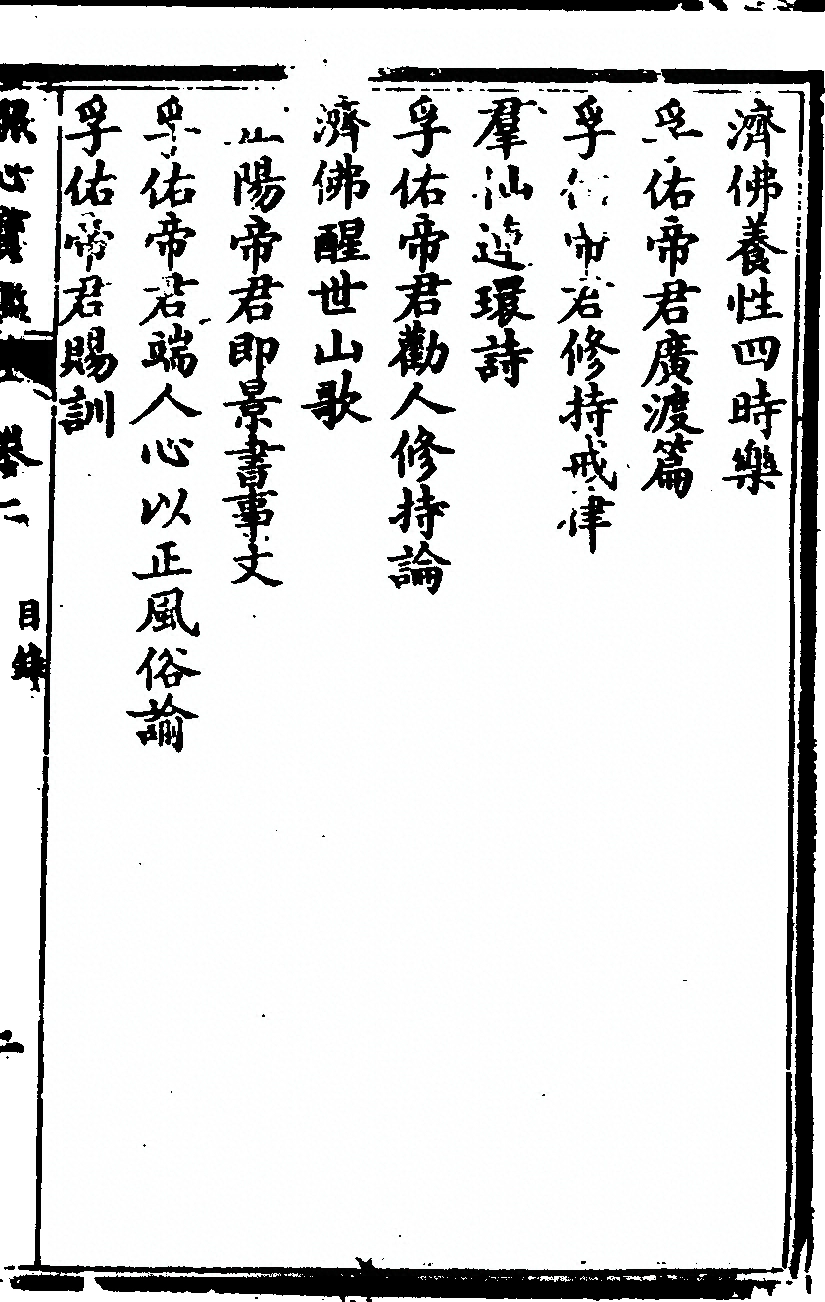 濟佛養性四時樂
孚佑帝君廣渡篇
孚佑帝君修持戒律
羣仙連環詩
孚佑帝君勸人修持論
濟佛醒世山歌
陽帝君即景書事文
孚佑帝君端人心以正風俗論
孚佑帝君賜訓
心寶 卷二 目錄 二